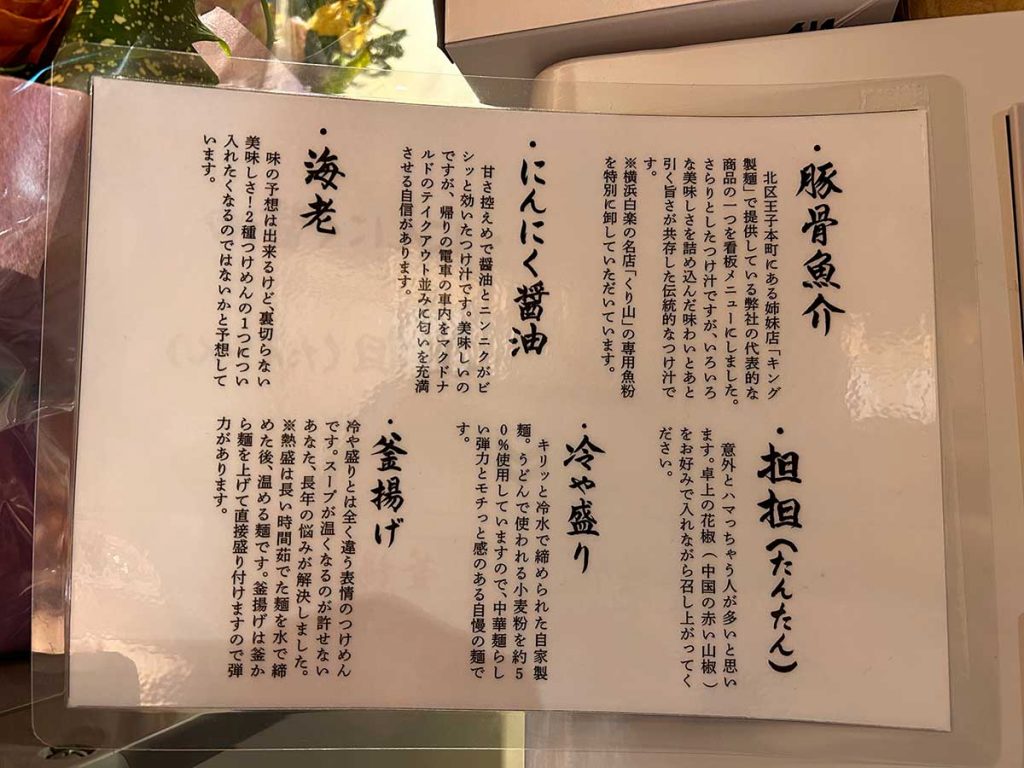 ・豚骨魚介
北区王子本町にある姉妹店「キング
製麺」で提供している弊社の代表的な
商品の一つを看板メニューにしました。
さらりとしたつけ汁ですが、いろいろ
な美味しさを詰め込んだ味わいとあと
引く旨さが共存した伝統的なつけ汁で
す。
※横浜白楽の名店「くり山」の専用魚粉
を特別に卸していただいています。
・にんにく醤油
甘さ控えめで醤油とニンニクがビ
シッと効いたつけ汁です。美味しいの
ですが、帰りの電車の車内をマクドナ
ルドのテイクアウト並みに匂いを充満
させる自信があります。
・海老
味の予想は出来るけど裏切らない
美味しさ！2種つけめんの1つについ
入れたくなるのではないかと予想して
います。
・担担（たんたん）
意外とハマっちゃう人が多いと思い
ます。卓上の花椒（中国の赤い山椒）
をお好みで入れながら召し上がってく
ださい。
・冷や盛り
キリッと冷水で締められた自家製
麺。うどんで使われる小麦粉を約5
0％使用していますので、中華麺らし
い弾力とモチっと感のある自慢の麺で
す。
・釜揚げ
冷や盛りとは全く違う表情のつけめん
です。スープが温くなるのが許せない
あなた、長年の悩みが解決しました。
※熱盛は長い時間茹でた麺を水で締
めた後、温める麺です。釜揚げは釜か
ら麺を上げて直接盛り付けますので弾
力があります。